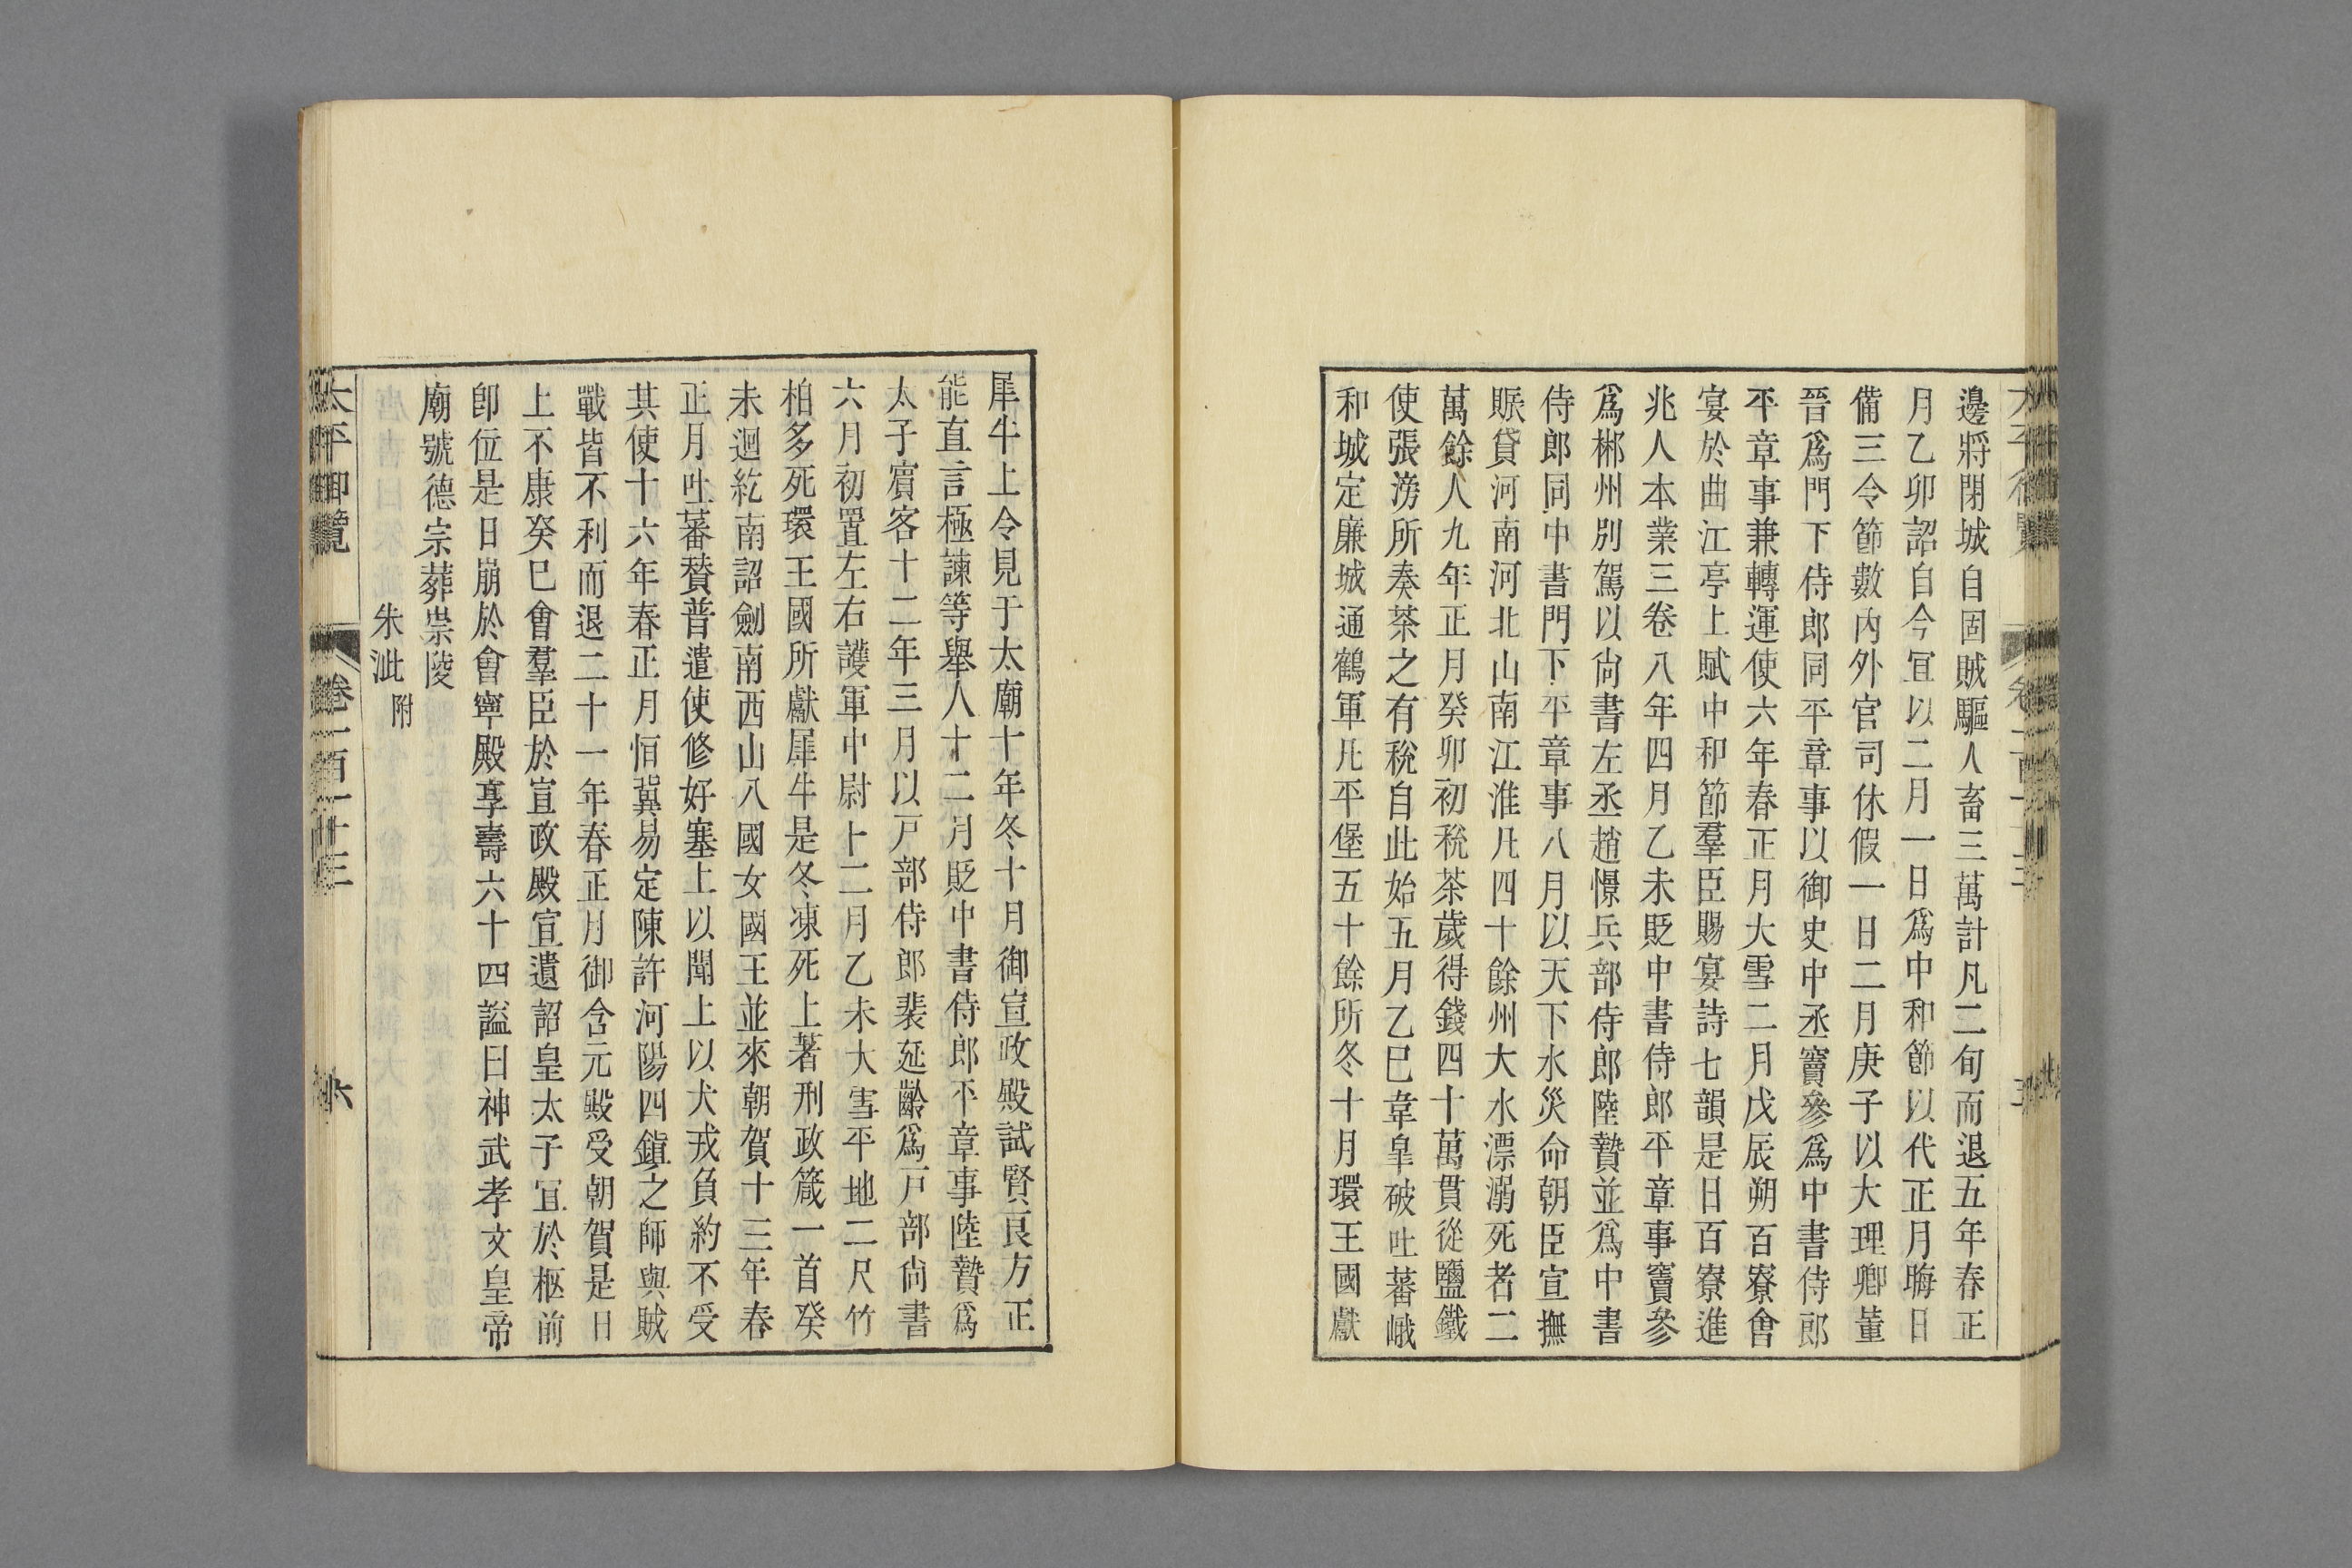 邊將閉城自固賊驅人畜三萬計凡二旬而退五年春正
月乙卯詔自今宜以二月一日爲中和節以代正月晦日
備三令節數內外官司休假一日二月庚子以大理卿董
晉爲門下侍郎同平章事以御史中丞竇參爲中書侍郎
平章事兼轉運使六年春正月大雪二月戊辰朔百寮會
宴於曲江亭上賦中和節羣臣賜宴詩七韻是日百寮進
兆人本業三卷八年四月乙未貶中書侍郎平章事竇參
爲郴州別駕以尙書左丞趙憬兵部侍郎陸贄並爲中書
侍郎同中書門下平章事八月以天下水災命朝臣宣撫
賑貸河南河北山南江淮凡四十餘州大水漂溺死者二
萬餘人九年正月癸卯初稅茶歲得錢四十萬貫從鹽鐵
使張滂所奏茶之有稅自此始五月乙巳韋皐破吐蕃峨
和城定廉城通鶴軍凡平堡五十餘所冬十月環王國獻
犀牛上令見于太廟十年冬十月御宣政殿試賢良方正
能直言極諫等舉人十二月貶中書侍郎平章事陸贄爲
太子賓客十二年三月以戸部侍郎裴延齡爲戸部尙書
六月初置左右護軍中尉十二月乙未大雪平地二尺竹
柏多死環王國所獻犀牛是冬凍死上著刑政箴一首癸
未迴紇南詔劍南西山八國女國王並來朝賀十三年春
正月吐蕃贊普遣使修好塞上以聞上以犬戎負約不受
其使十六年春正月恒冀易定陳許河陽四鎮之師與賊
戰皆不利而退二十一年春正月御含元殿受朝賀是日
上不康癸巳會羣臣於宣政殿宣遺詔皇太子宜於柩前
卽位是日崩於會寧殿享壽六十四諡曰神武孝文皇帝
廟號德宗葬崇陵
朱泚附
太平御覽 卷一百一十三 六